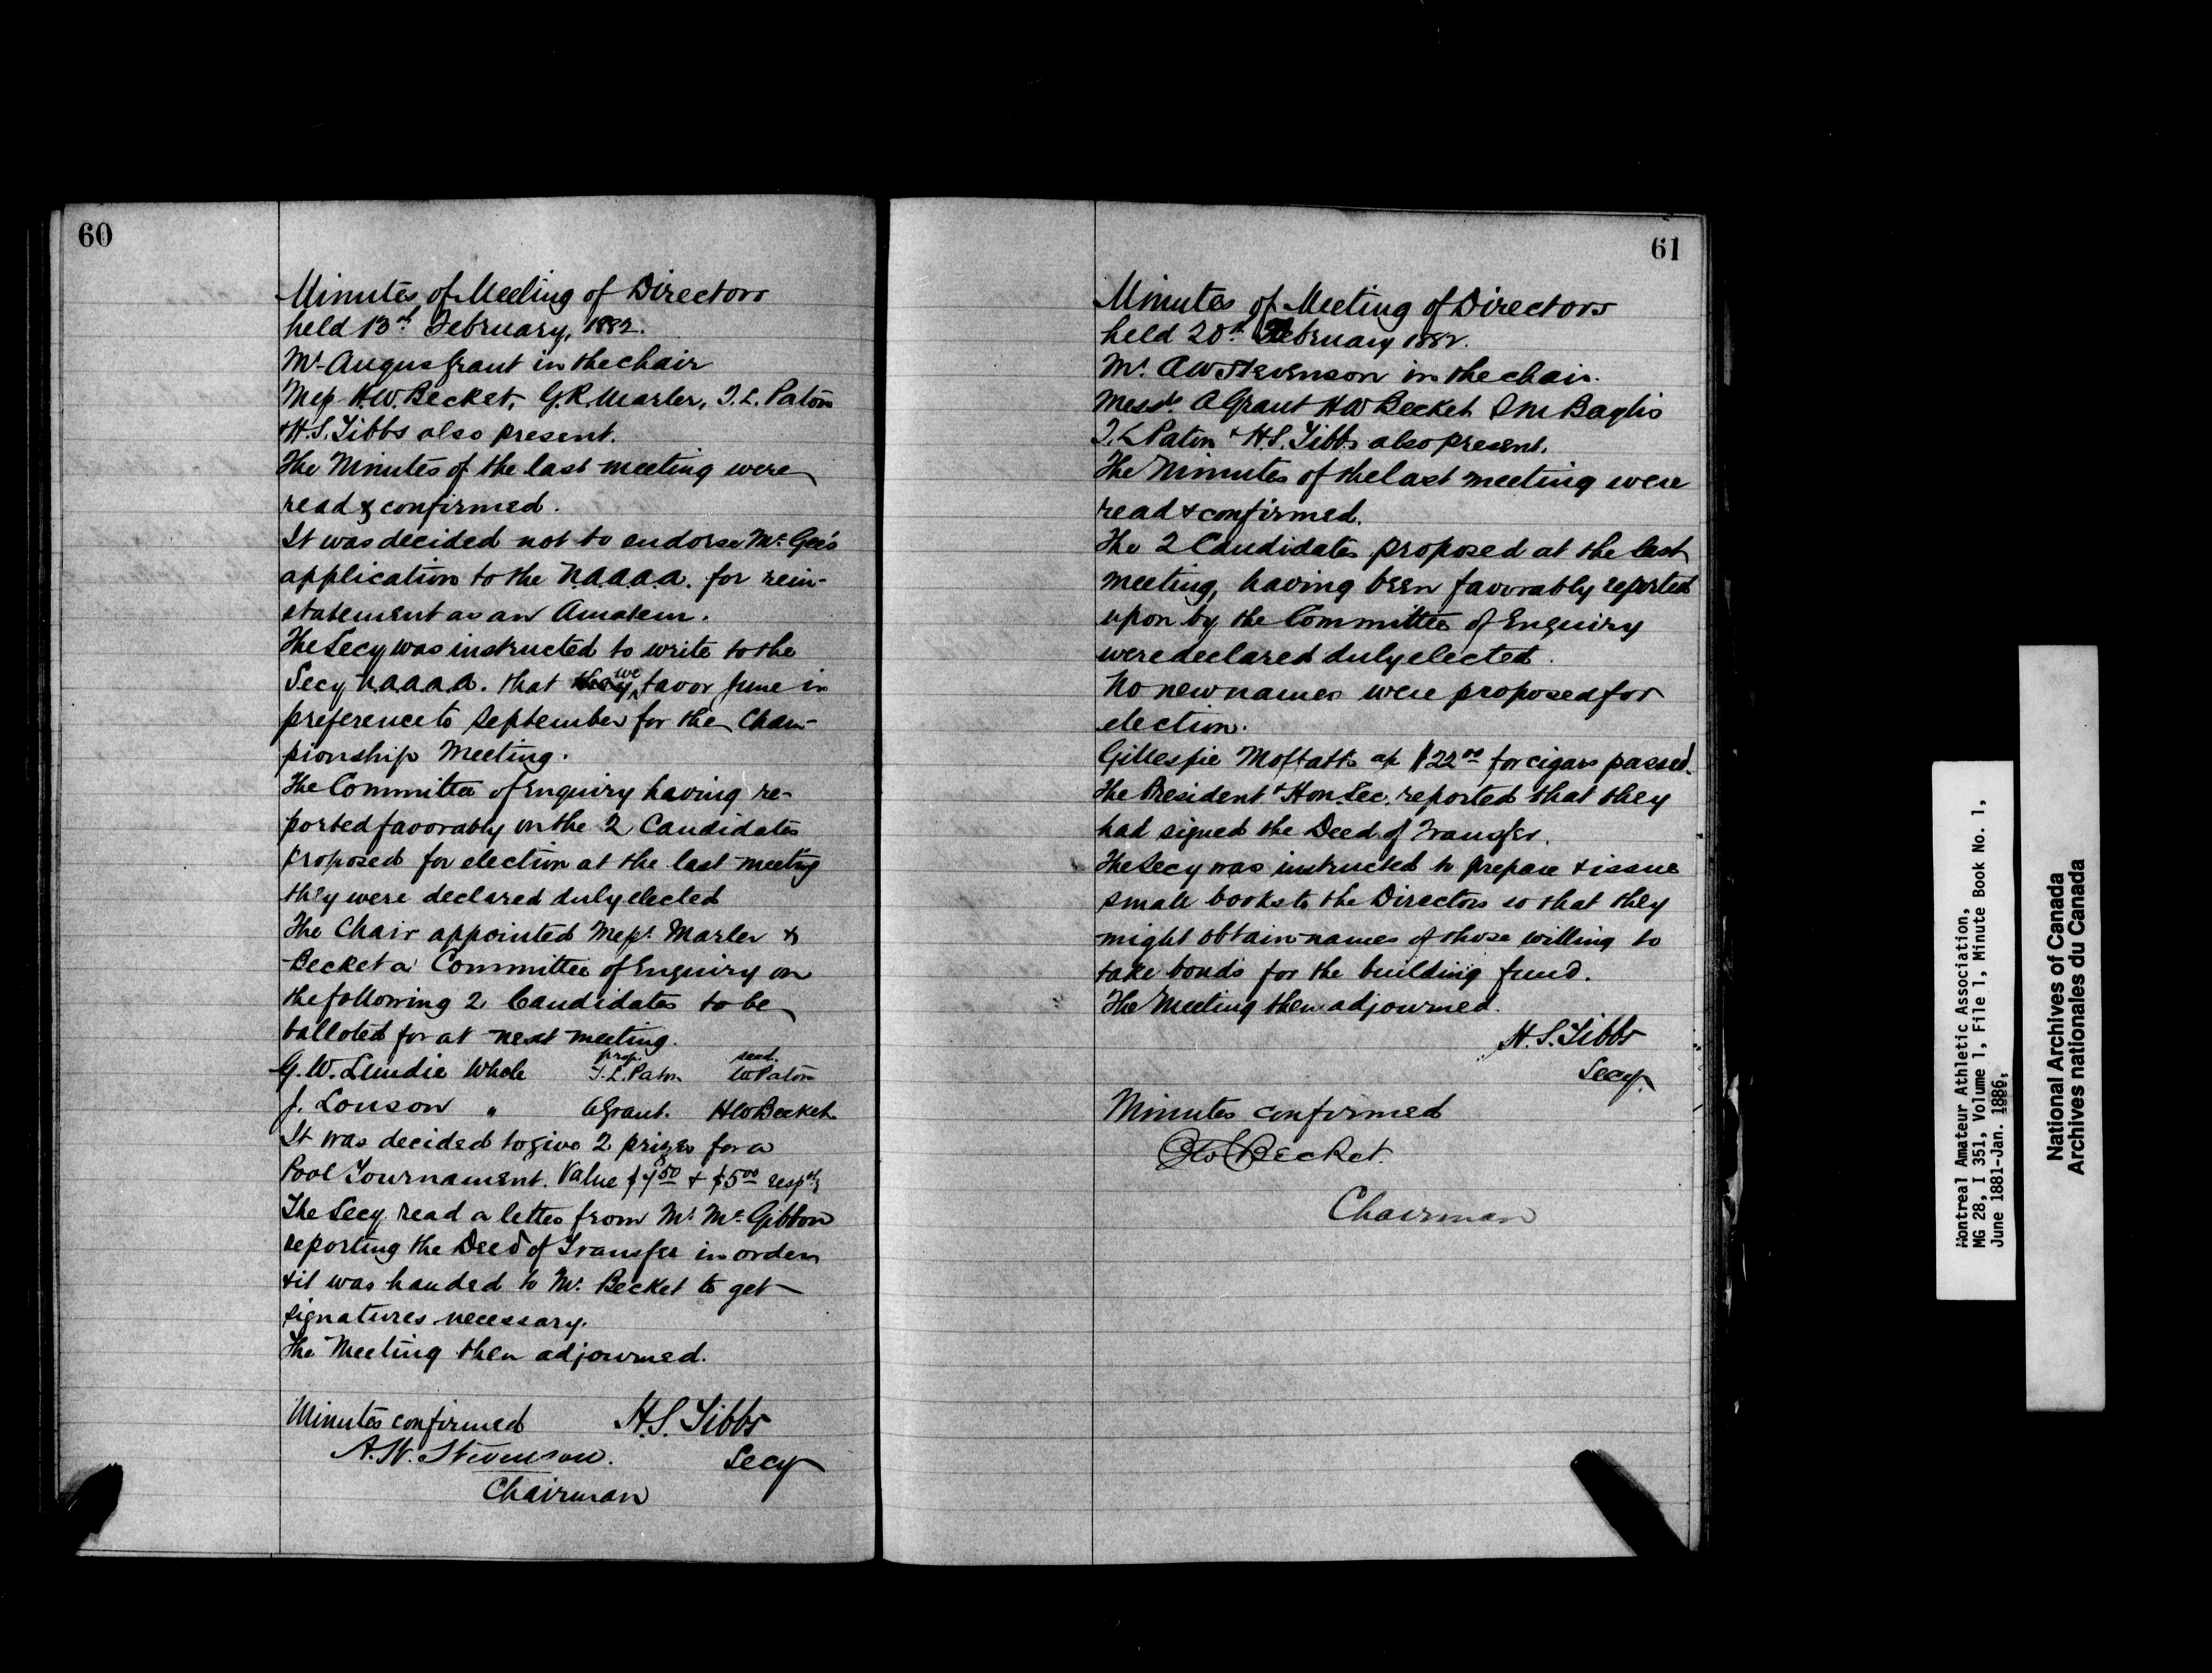 60
Minutes of Meeting of Directors
held 13th February, 1882.
Mr Angus Grant in the chair
Mess H.W. Becket, G.R. Marler, T.L. Paton
& H.S. Tibbs also present.
The Minutes of the last meeting were
read & confirmed.
It was decided not to endorse Mr Gee's
application to the N.A.A.A.A. for rein-
statement as an Amateur.
The Secy was instructed to write to the
Secy N.A.A.A.A. that they we favor June in
preference to September for the Cham-
pionship Meeting.
The Committee of Enquiry having re-
ported favorably on the 2 Candidates
proposed for election at the last meeting
they were declared duly elected
The Chair appointed Messrs Marler &
Becket a Committee of Enquiry on
the following 2 Candidates to be
balloted for at next meeting.
prop. secd.
G.W. Lundie Whole T.L. Paton W Paton
J. Louson " A Grant. HW Becket
It was decided to give 2 prizes for a
Pool Tournament. Value & $5.00
The Secy read a letter from Mr McGibbon
reporting the Deed of Transfer in order
& it was handed to Mr. Becket to get
signatures necessary.
The Meeting then adjourned.
Minutes confirmed H.S. Tibbs
A.W. Stevenson. Secy
Chairman
61
Minutes of Meeting of Directors
held 20th February 1882.
Mr. AW Stevenson in the chair.
Messrs. A Grant HW Becket
T.L Paton & H.S. Tibbs also present.
The Minutes of the last meeting were
read & confirmed.
The 2 Candidates proposed at the last
meeting, having been favorably reported
upon by the Committee of Enquiry
were declared duly elected.
No new names were proposed for
election.
Gillespie Moffatt's a/c $22.00 for cigars passed.
The President & Hon. Sec. reported that they
had signed the Deed of Transfer.
The Secy was instructed to prepare & issue
small books to the Directors so that they
might obtain names of those willing to
take bonds for the building fund.
The Meeting then adjourned.
H.S. Tibbs
Secy.
Minutes confirmed
HW Becket.
Chairman
Montreal Amateur Athletic Association,
MG 28, I 351, Volume 1, File 1, Minute Book No. 1,
June 1881-Jan. 1886;
National Archives of Canada
Archives nationales du Canada